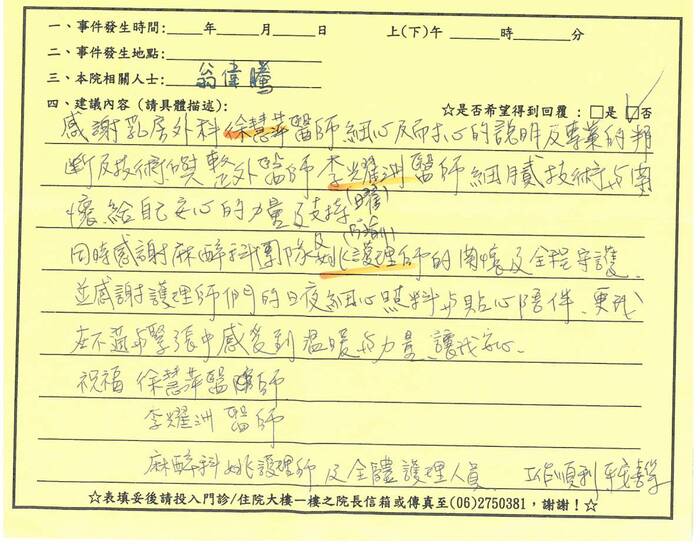 一、事件發生時間:____年____月____日 上(下)午 ____時____分
二、事件發生地點:
三、本院相關人士: 翁偉騰
四、建議內容 (請具體描述): ☆是否希望得到回覆 : □是 ☑否
感謝乳房外科徐慧萍醫師細心及耐心的說明及專業的判
斷及技術與整外醫師李耀洲醫師細膩技術与関
懷給自己安心的力量及支持
同時感謝麻醉科團隊及姚護理師的関懷及全程守護.
並感謝護理師們的日夜細心照料与貼心陪伴、更
在不適与緊張中感覺到溫暖与力量、讓我安心.
祝福 徐慧萍醫師
李耀洲 醫師
麻醉科姚護理師及全體護理人員 工作順利
☆表填妥後請投入門診/住院大樓一樓之院長信箱或傳真至(06)2750381,謝謝!☆